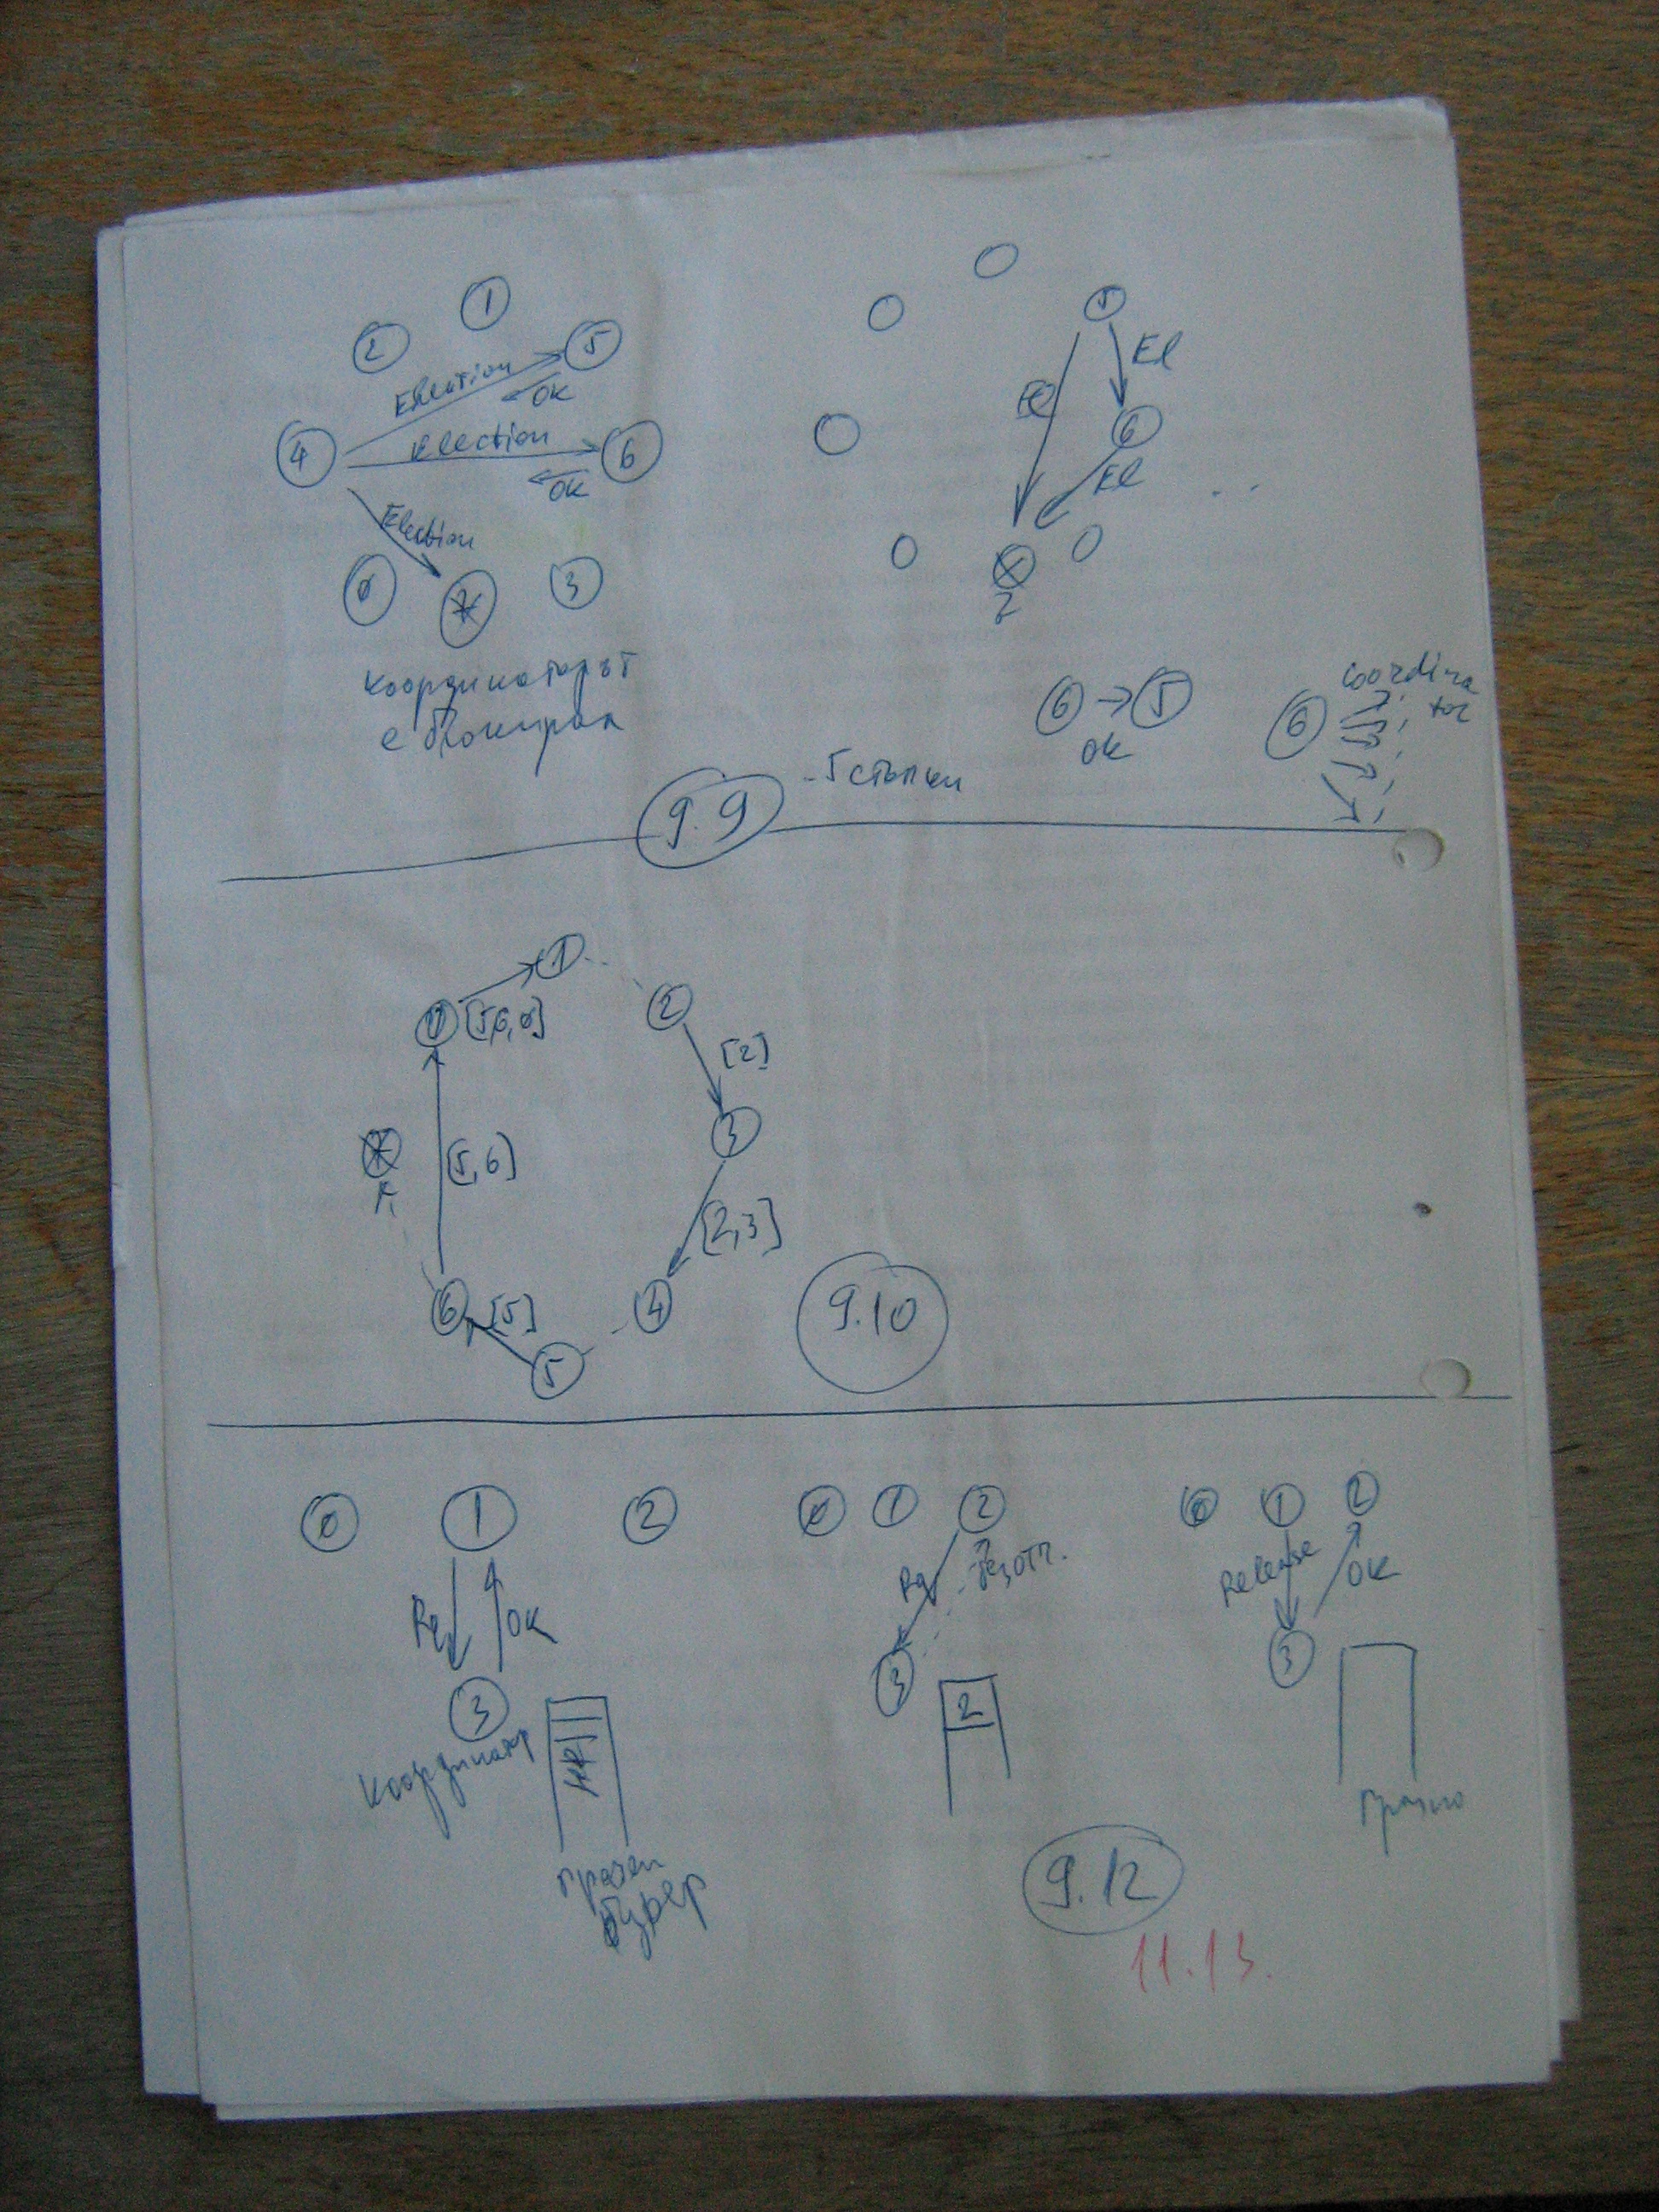 1
2
5
Election
OK
4
Election
6
OK
Election
0
7
3
координаторът
е блокирал
5
El
El
6
El
7
6 → 5
OK
6
coordina
tor
9.9
- 5 стъпки
1
0 [5,6,0]
2
[2]
3
7
[5,6]
[2,3]
6
[5]
4
5
9.10
0 1 2
Rq
OK
3
Координатор
празен
буфер
0 1 2
Rq
без отг.
3
2
0 1 2
Release
OK
3
празно
9.12
11.13.